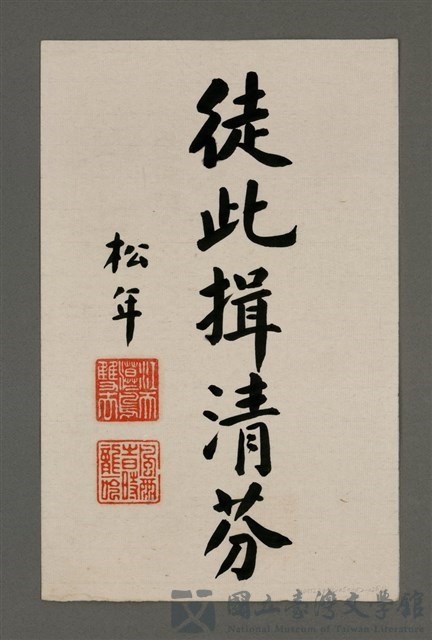 徒此揖清芬
松年
國立臺灣文學館
National Museum of Taiwan Literature